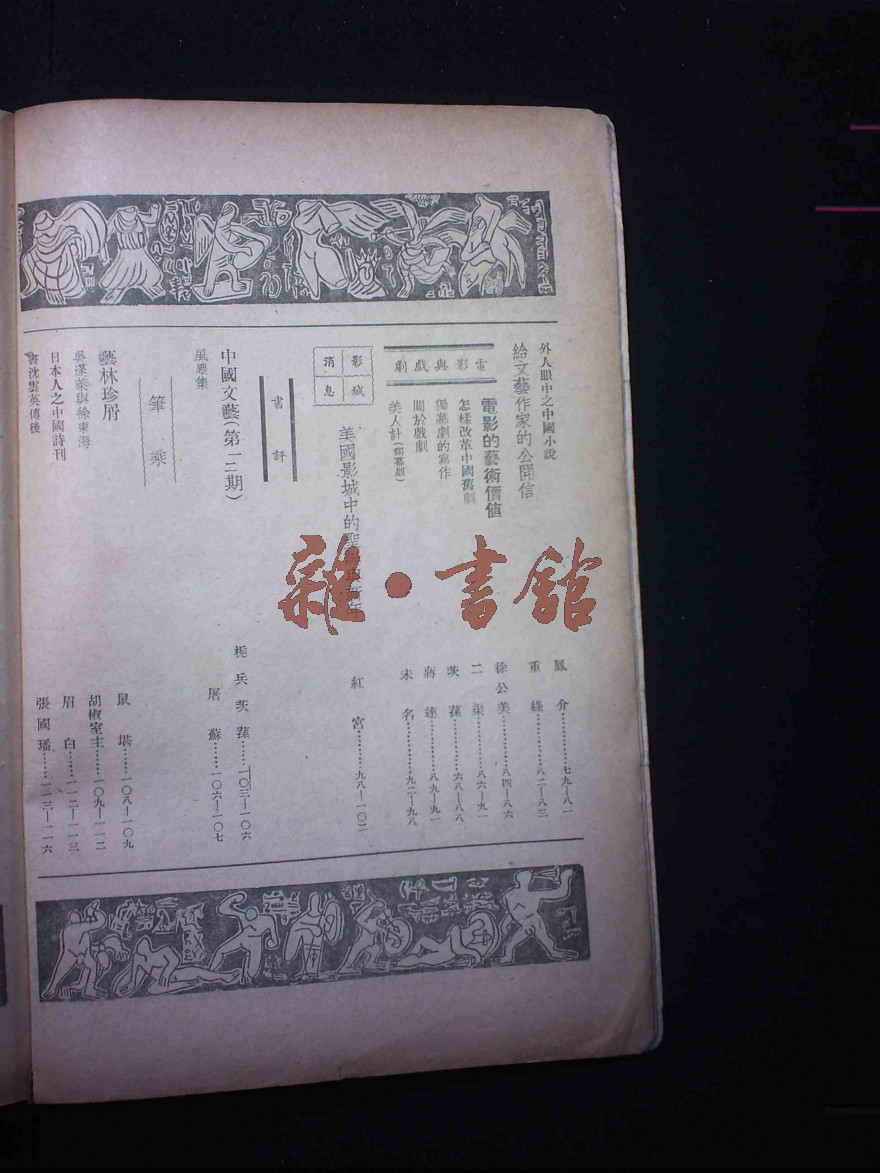 外人眼中之中國小說 鳳介⋯⋯七九—八一
給文藝作家的公開信 重綠⋯⋯八二—八三
電影與戲劇
電影的藝術價值 徐公美⋯⋯八四—八六
怎樣改革中國舊劇 二渠⋯⋯八六—九一
獨幕劇的寫作 茨蓀⋯⋯六八—八八
關於戲劇 蔣達⋯⋯八九—九一
美人計(獨幕劇) 未名⋯⋯九二—九八
影城消息
美國影城中的聖 紅宮⋯⋯九八—一〇二
書評
中國文藝(第一二期) 梔兵茨蓀⋯⋯一〇三—一〇六
風塵集 屠蘇⋯⋯一〇六—一〇七
筆乘
藝林珍屑 鼠堪⋯⋯一〇八—一〇九
吳蓬萊與徐東海 胡椒室主⋯⋯一〇九—一一二
日本人之中國詩刊 眉白⋯⋯一一二—一一三
書沈雲英傳後 張國璠⋯⋯一一三—一一六
雜·書館